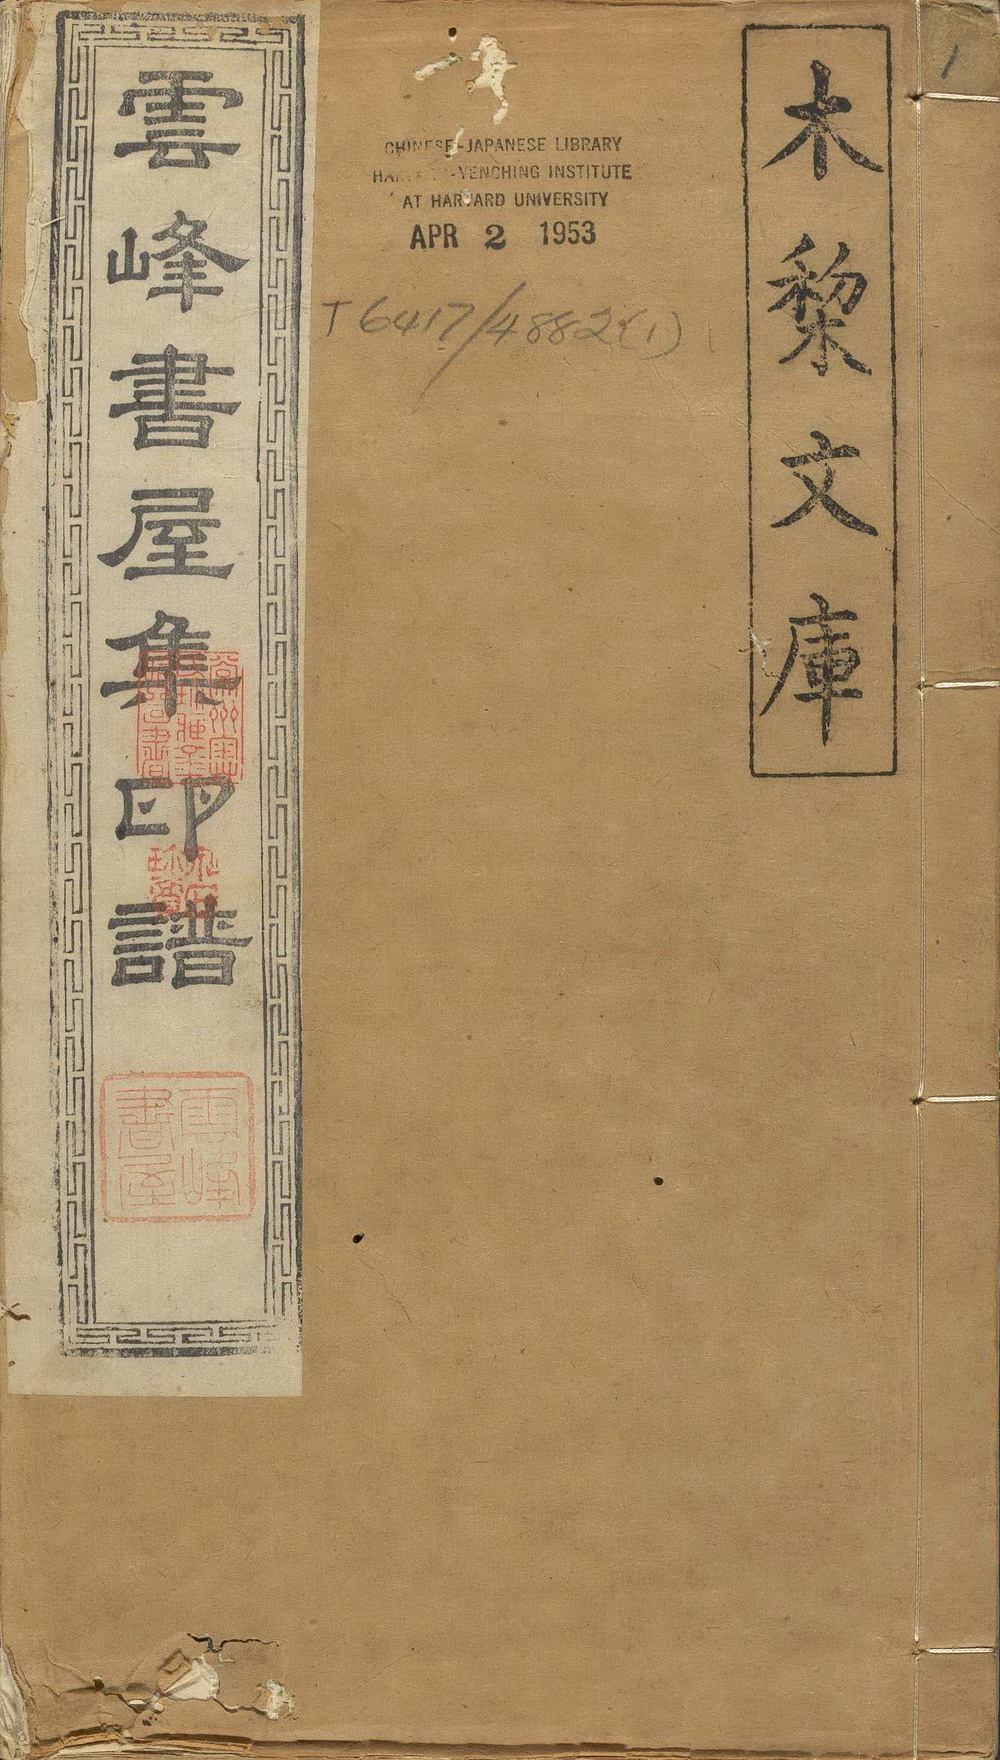 木棃文庫
CHINESE-JAPANESE LIBRARY
HARVARD-YENCHING INSTITUTE
AT HARVARD UNIVERSITY
APR 2 1953
T 6417/4882 (1)
雲峰書屋集印譜
雲峰
書屋
1